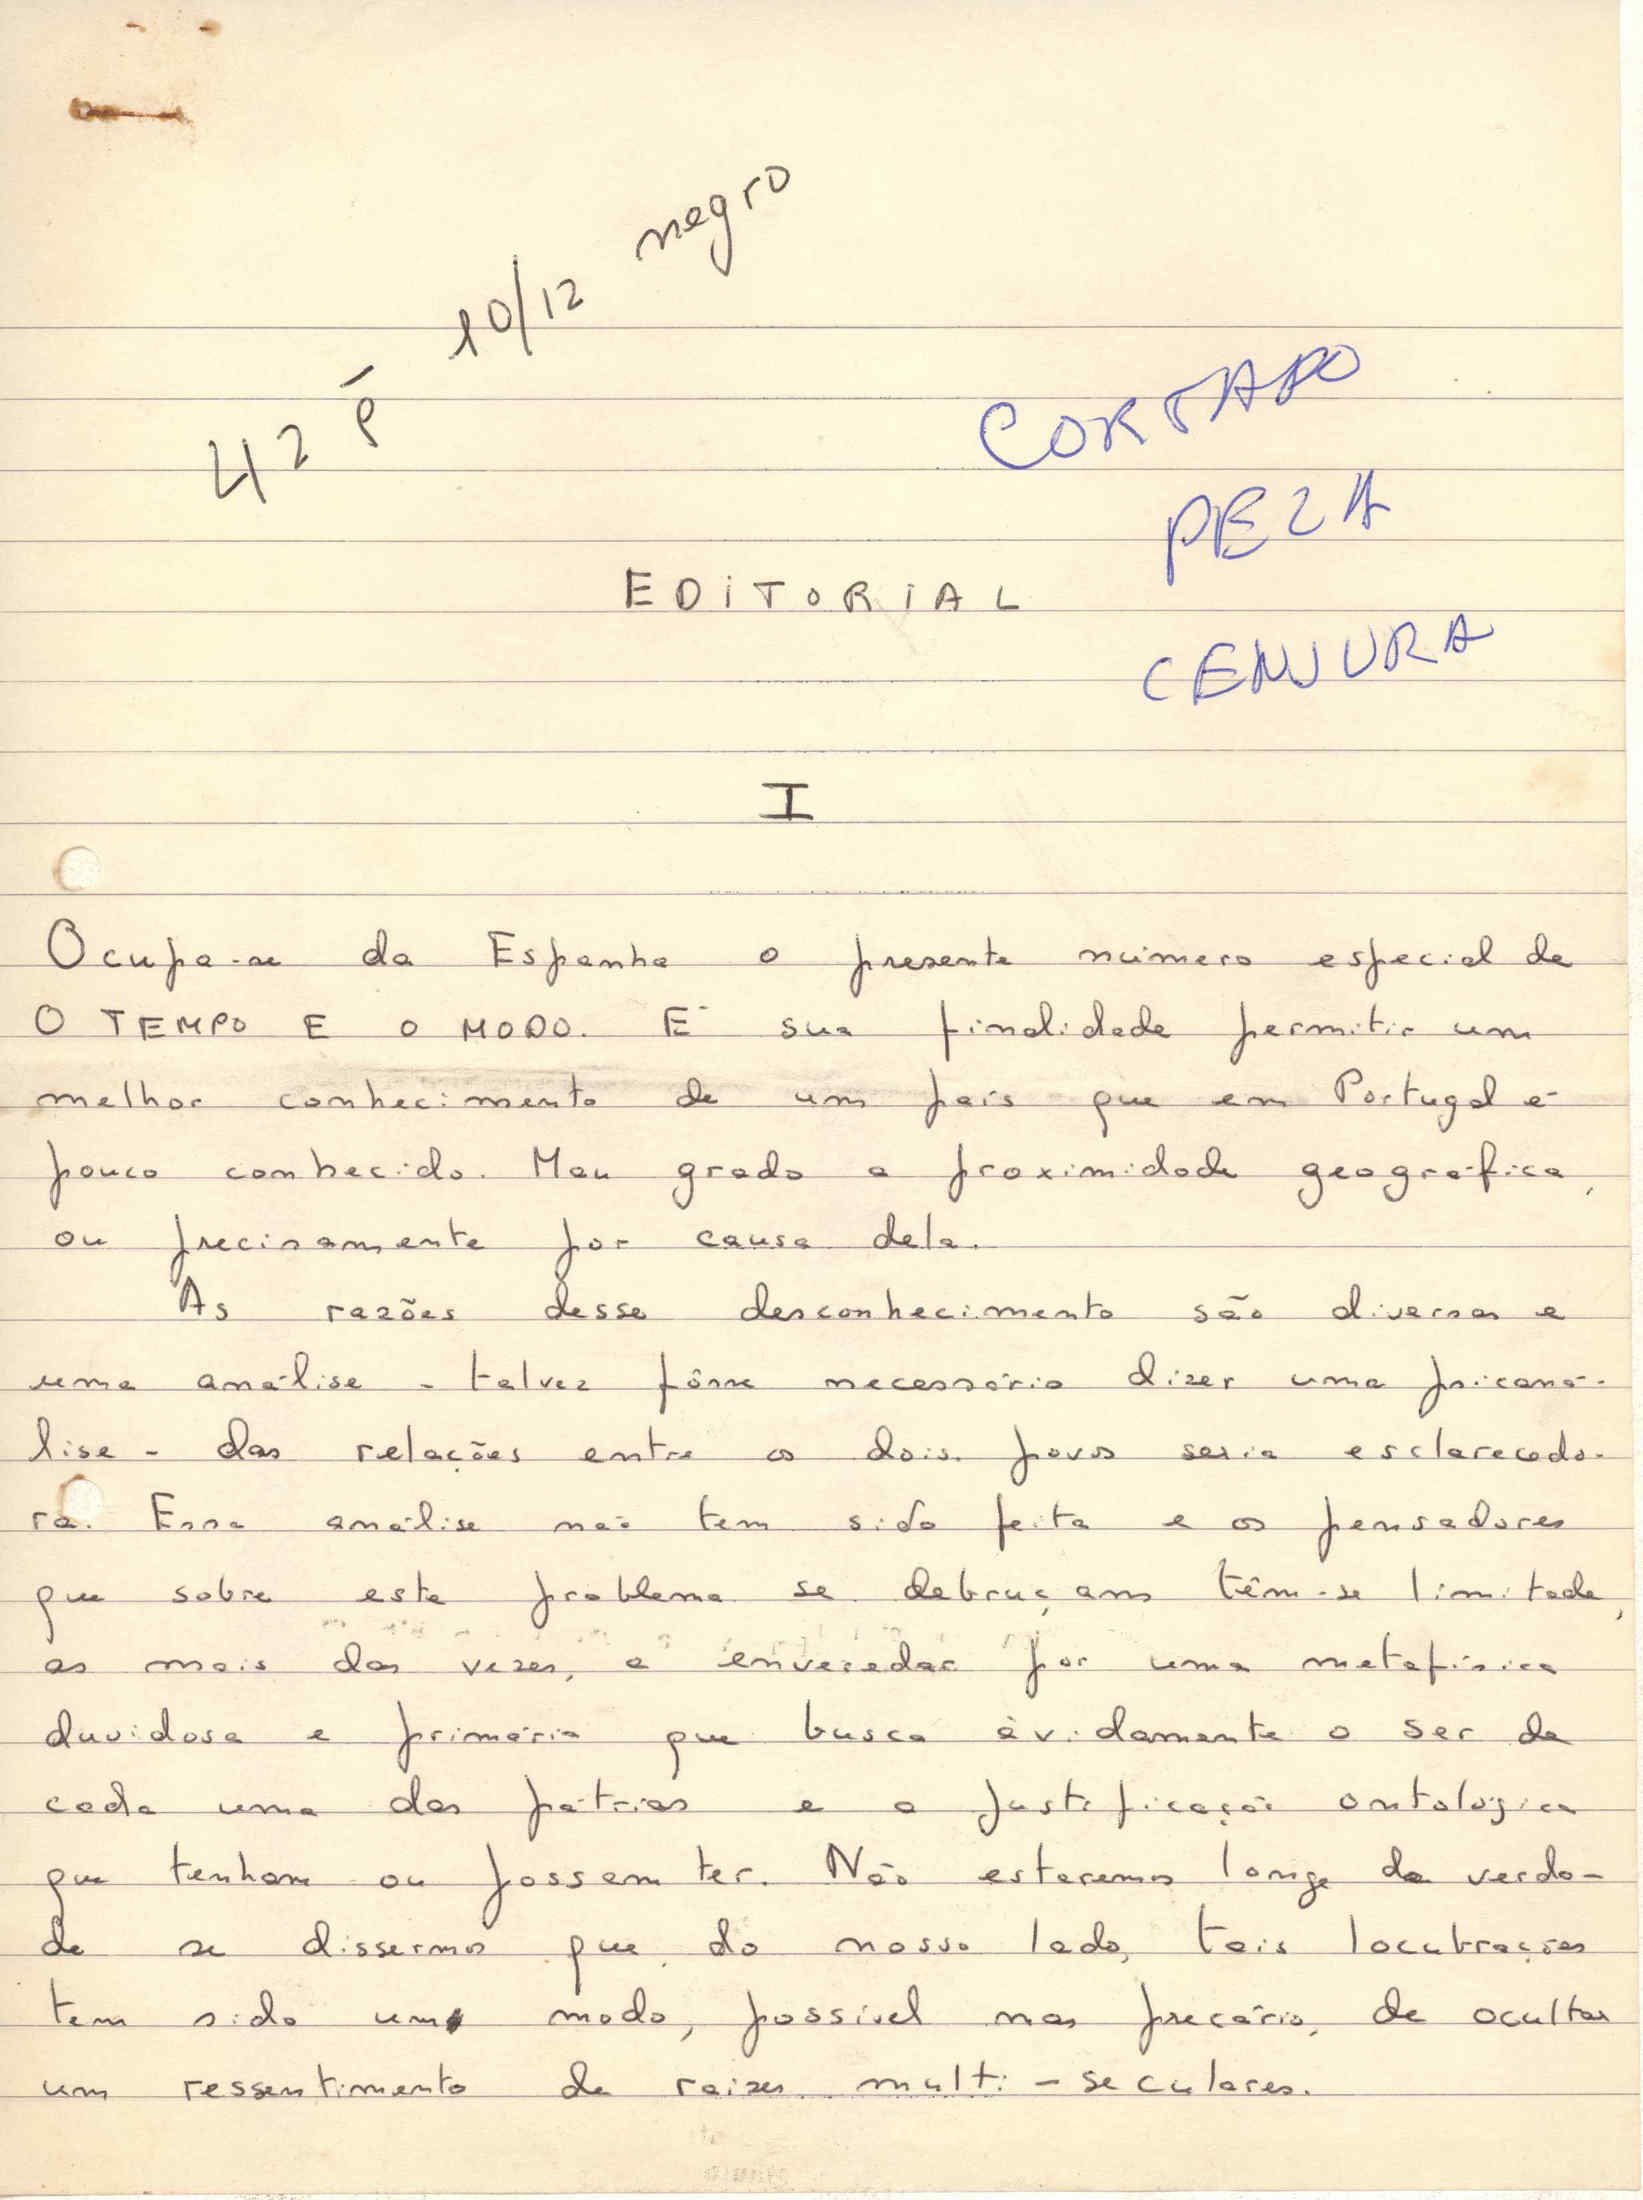 42 p 10/12 negro
CORTADO
PELA
CENSURA
EDITORIAL
I
Ocupa-se da Espanha o presente número especial de
O TEMPO E O MODO. É sua finalidade permitir um
melhor conhecimento de um país que em Portugal é
pouco conhecido. Mau grado a proximidade geográfica,
ou precisamente por causa dela.
As razões desse desconhecimento são diversas e
uma análise - talvez fôsse necessário dizer uma psicaná-
lise - das relações entre os dois povos seria esclarecedo-
ra. Essa análise não tem sido feita e os pensadores
que sobre este problema se debruçam têm-se limitado,
as mais das vezes, a enveredar por uma metafísica
duvidosa e primária que busca àvidamente o ser de
cada uma das pátrias e a justificação ontológica
que tenham ou possam ter. Não estaremos longe da verda-
de se dissermos que, do nosso lado, tais locubrações
tem sido um modo, possível mas precário, de ocultar
um ressentimento de raízes multi-seculares.